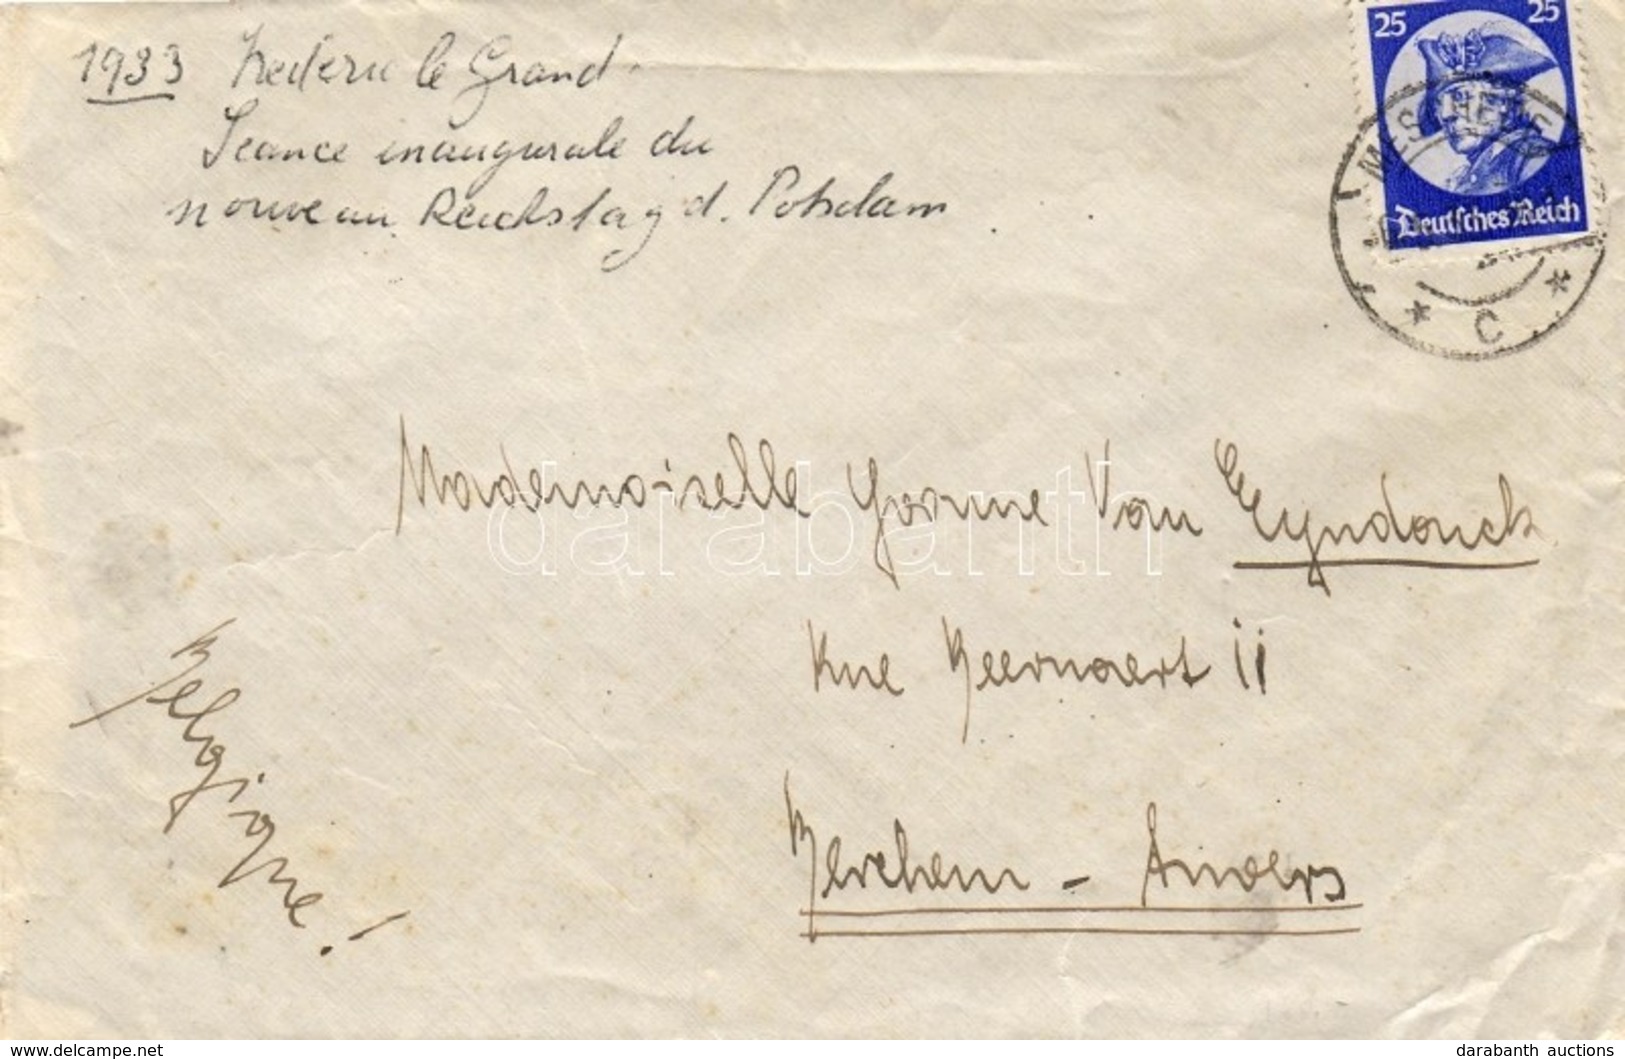 1933 Frederic le Grand.
Séance inaugurale du
nouveau Reichstag d. Potsdam
25 25
MESCHEDE
Deutsches Reich
* C *
Mademoiselle Yvonne Van Eyndonck
Rue Beernaert 11
Berchem - Anvers
Belgique!
darabanth
www.delcampe.net
darabanth auctions